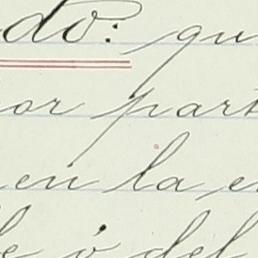 do: qu
or part
en la e
le ó del